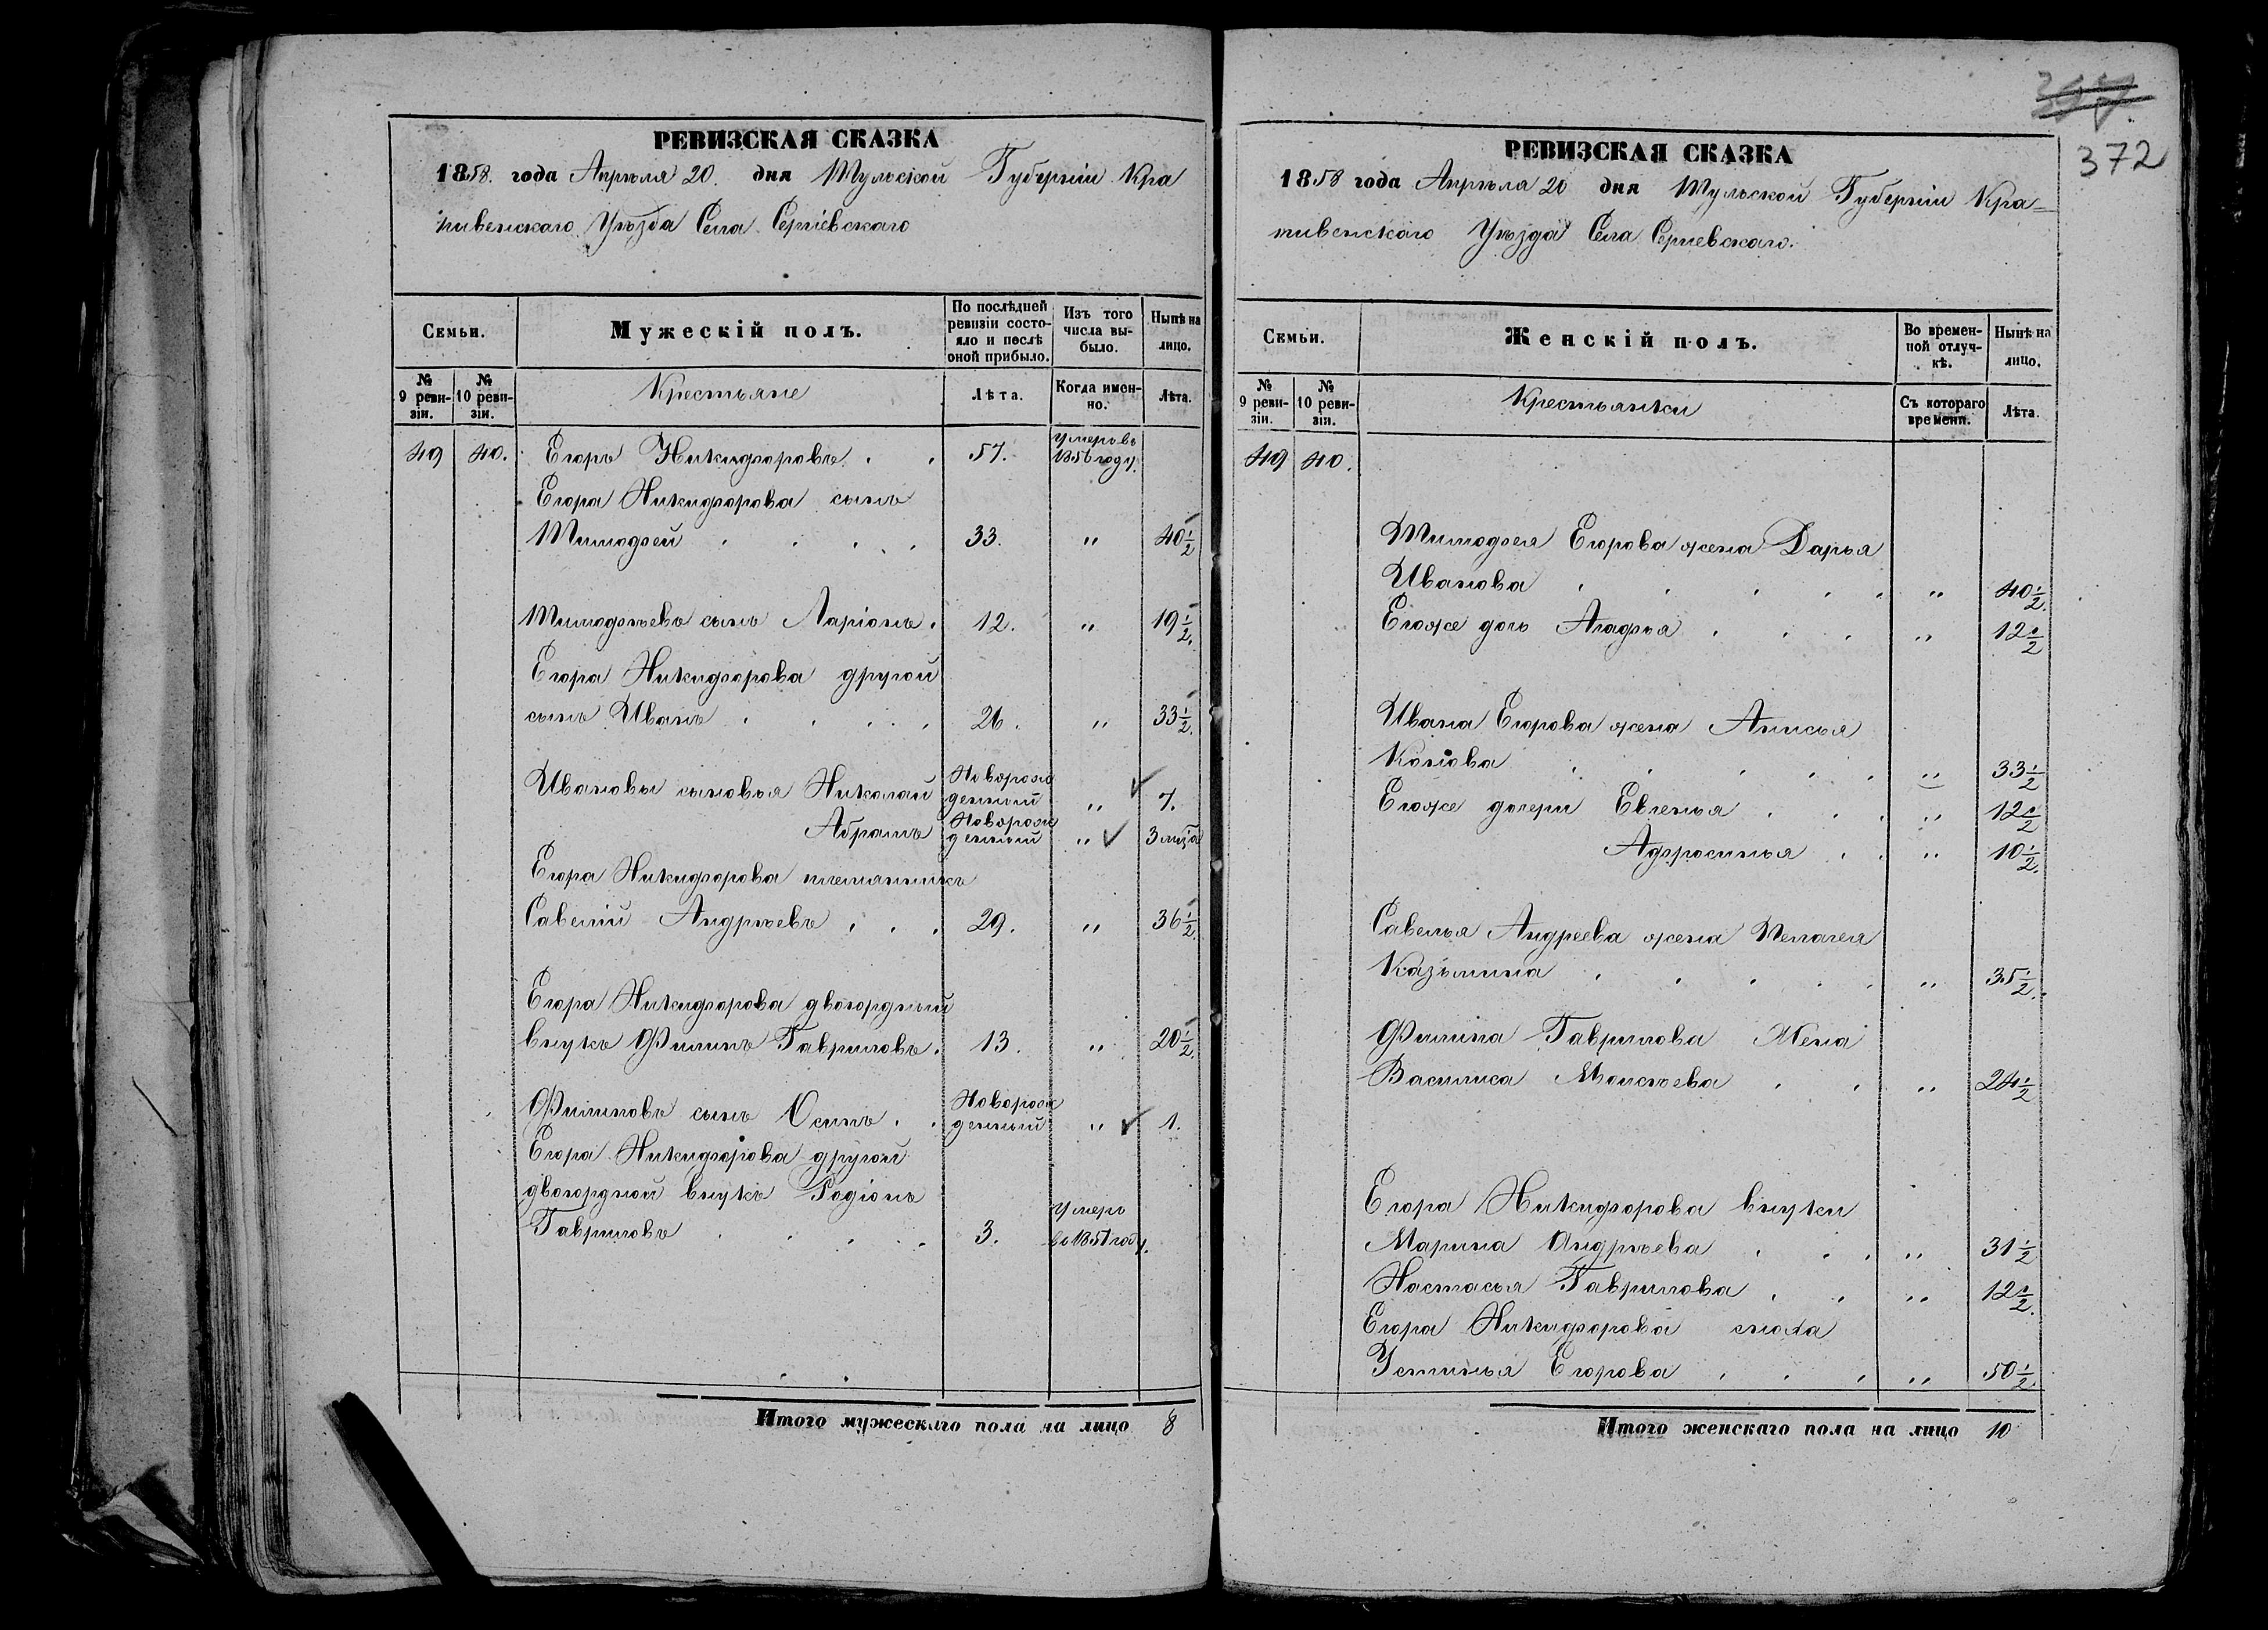 РЕВИЗСКАЯ СКАЗКА
1858. года Апрѣля 20. дня Тульской Губерніи Кра
пивенскаго Уѣзда Села Сергіевскаго
Семьи.
Мужескій полъ.
По послѣдней ревизіи состо-
яло и послѣ оной прибыло.
Изъ того числа вы-
было.
Нынѣ на лицо.
№ 9 реви-
зіи.
№ 10 реви-
зіи.
Крестьяне
Лѣта.
Когда имен-
но.
Лѣта.
49 40. Егоръ Никифоровъ . . 57. умеръ въ
1856 году.
Егора Никифорова сынъ
Тимофей . . . . 33. " 40 1/2
Тимофѣевъ сынъ Ларіонъ. 12. " 19 1/2.
Егора Никифорова другой
сынъ Иванъ . . . . 26. " 33 1/2.
Ивановы сыновья Николай Новорож
денный " ✓ 7.
Абрамъ Новорож
денный " ✓ 3 мѣ́ца
Егора Никифорова племянникъ
Савелій Андрѣевъ . . . 29. " 36 1/2.
Егора Никифорова двоюрдный
внукъ Филипъ Гавриловъ. 13. " 20 1/2.
Филиповъ сынъ Осипъ . . Новорож
денный " ✓ 1.
Егора Никифорова другой
двоюрдной внукъ Родіонъ
Гавриловъ . . . . 3. Умеръ
въ 1857 году.
Итого мужескаго пола на лицо 8
372
РЕВИЗСКАЯ СКАЗКА
1858 года Апрѣля 20 дня Тульской Губерніи Кра=
пивенскаго Уѣзда Села Сергіевскаго.
Семьи.
Женскій полъ.
Во времен-
ной отлуч-
кѣ.
Нынѣ на лицо.
№ 9 реви-
зіи.
№ 10 реви-
зіи.
Крестьянки
Съ котораго
времени.
Лѣта.
49 40.
Тимофея Егорова жена Дарья
Иванова . . . . . " 40 1/2.
Егоже дочь Агафья . . . " 12 1/2
Ивана Егорова жена Анисья
Конова . . . . . " 33 1/2
Егоже дочери Евгенья . . . " 12 1/2
Афросинья . . " 10 1/2.
Савелья Андреева жена Пелагея
Казьмина . . . . . " 35 1/2.
Филипа Гаврилова Жена
Василиса Моисѣева . . " 24 1/2
Егора Никифорова внучки
Марина Андрѣева . . . " 31 1/2
Настасья Гаврилова . . " 12 1/2.
Егора Никифорова сноха
Устинья Егорова . . . " 50 1/2.
Итого женскаго пола на лицо 10